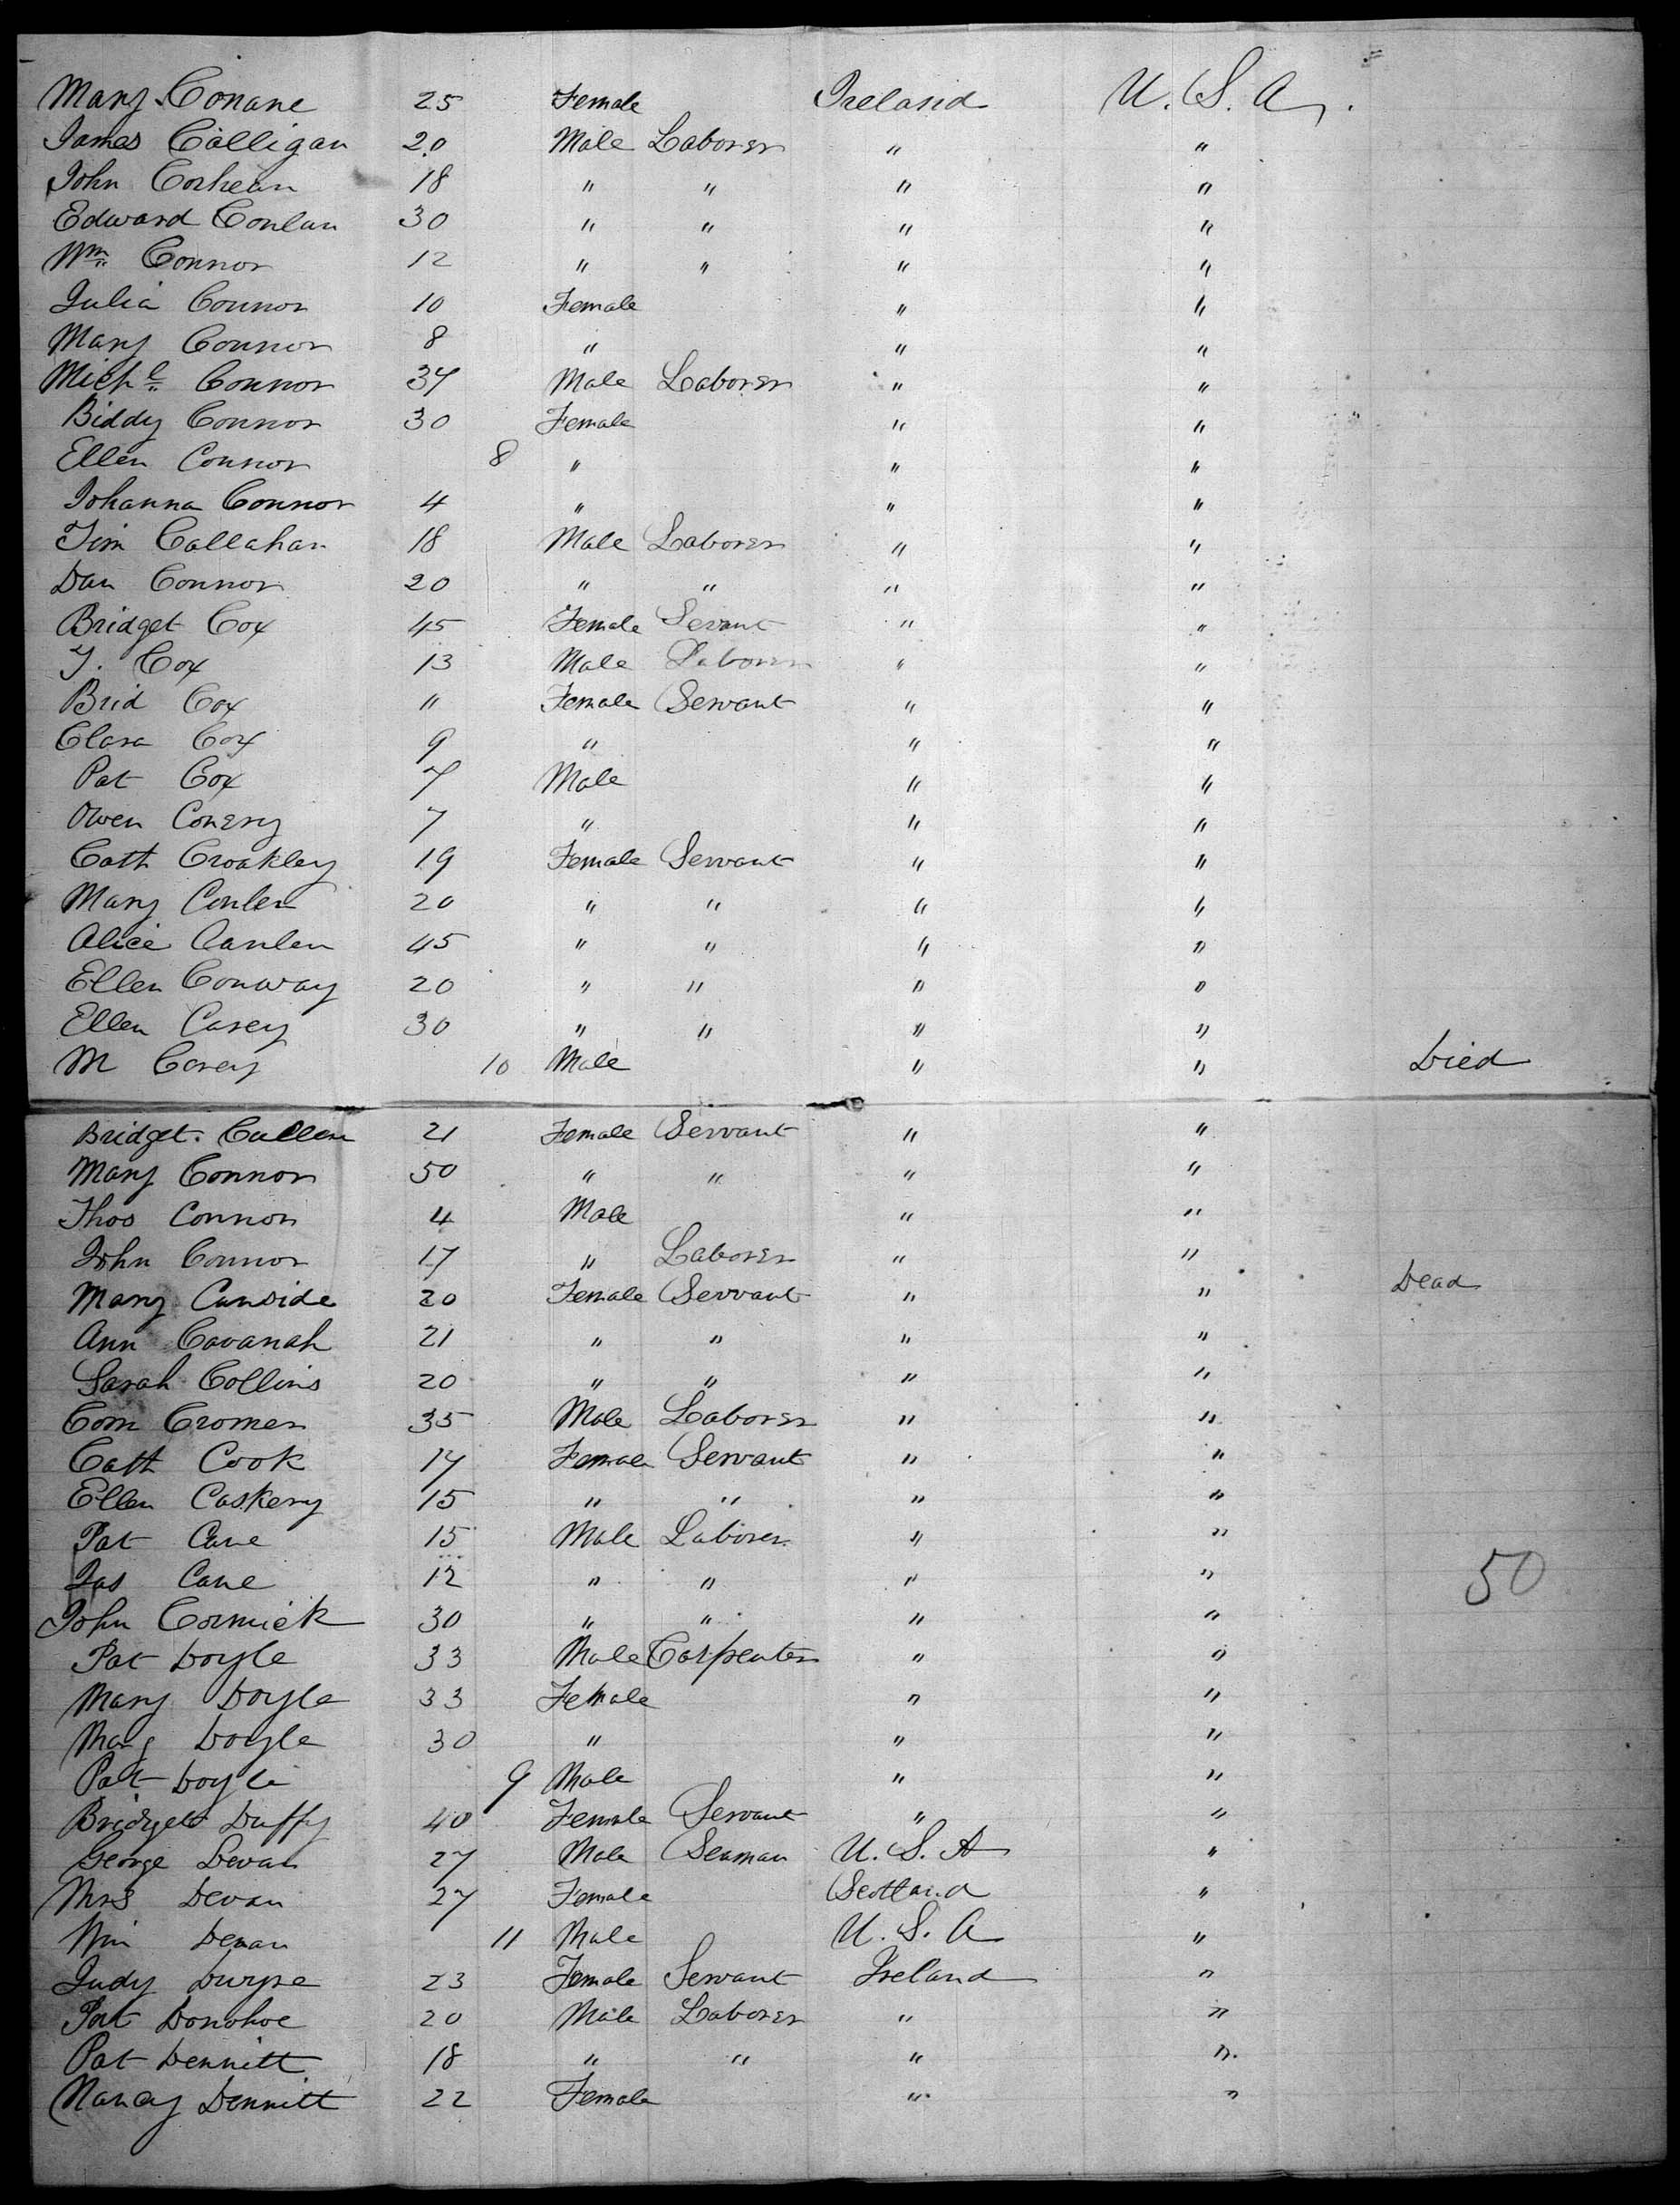 Mary Conane 25 Female Ireland U. S. A.
James Calligan 20 Male Laborer " "
John Corhean 18 " " " "
Edward Conlan 30 " " " "
Wm Connor 12 " " " "
Julia Connor 10 Female " "
Mary Connor 8 " " "
Michl Connor 34 Male Laborer " "
Biddy Connor 30 Female " "
Ellen Connor 8 " " "
Johanna Connor 4 " " "
Tim Callahan 18 Male Laborer " "
Dan Connor 20 " " " "
Bridget Cox 45 Female Sevant " "
T. Cox 13 Male Laborer " "
Brid Cox " Female Servant " "
Clara Cox 9 " " "
Pat Cox 7 Male " "
Owen Conery 7 " " "
Cath Croakley 19 Female Servant " "
Mary Conlen 20 " " " "
Alice Canlen 45 " " " "
Ellen Conway 20 " " " "
Ellen Casey 30 " " " "
M Casey 10 Male " " Died
Bridget Cullen 21 Female Servant " "
Mary Connor 50 " " " "
Thos Connor 4 Male " "
John Connor 17 " Laborer " "
Mary 20 Female Servant " " Dead
Ann Cavanah 21 " " " "
Sarah Collins 20 " " " "
Corn Cromer 35 Male Laborer " "
Cath Cook 17 Female Servant " "
Ellen Caskery 15 " " " "
Pat Cane 15 Male Laborer " "
Jas Cane 12 " " " " 50
John Cormick 30 " " " "
Pat Doyle 33 Male Carpenter " "
Mary Doyle 33 Female " "
Marg Doyle 30 " " "
Pat Doyle 9 Male " "
Bridget Duffy 40 Female Servant " "
George Devan 27 Male Seaman U. S. A "
Mrs Devan 27 Female Scotland "
Wm Devan 11 Male U. S. A "
Judy Dwyre 23 Female Servant Ireland "
Pat Donohoe 20 Male Laborer " "
Pat Dennitt 18 " " " "
Nancy Dennitt 22 Female " "